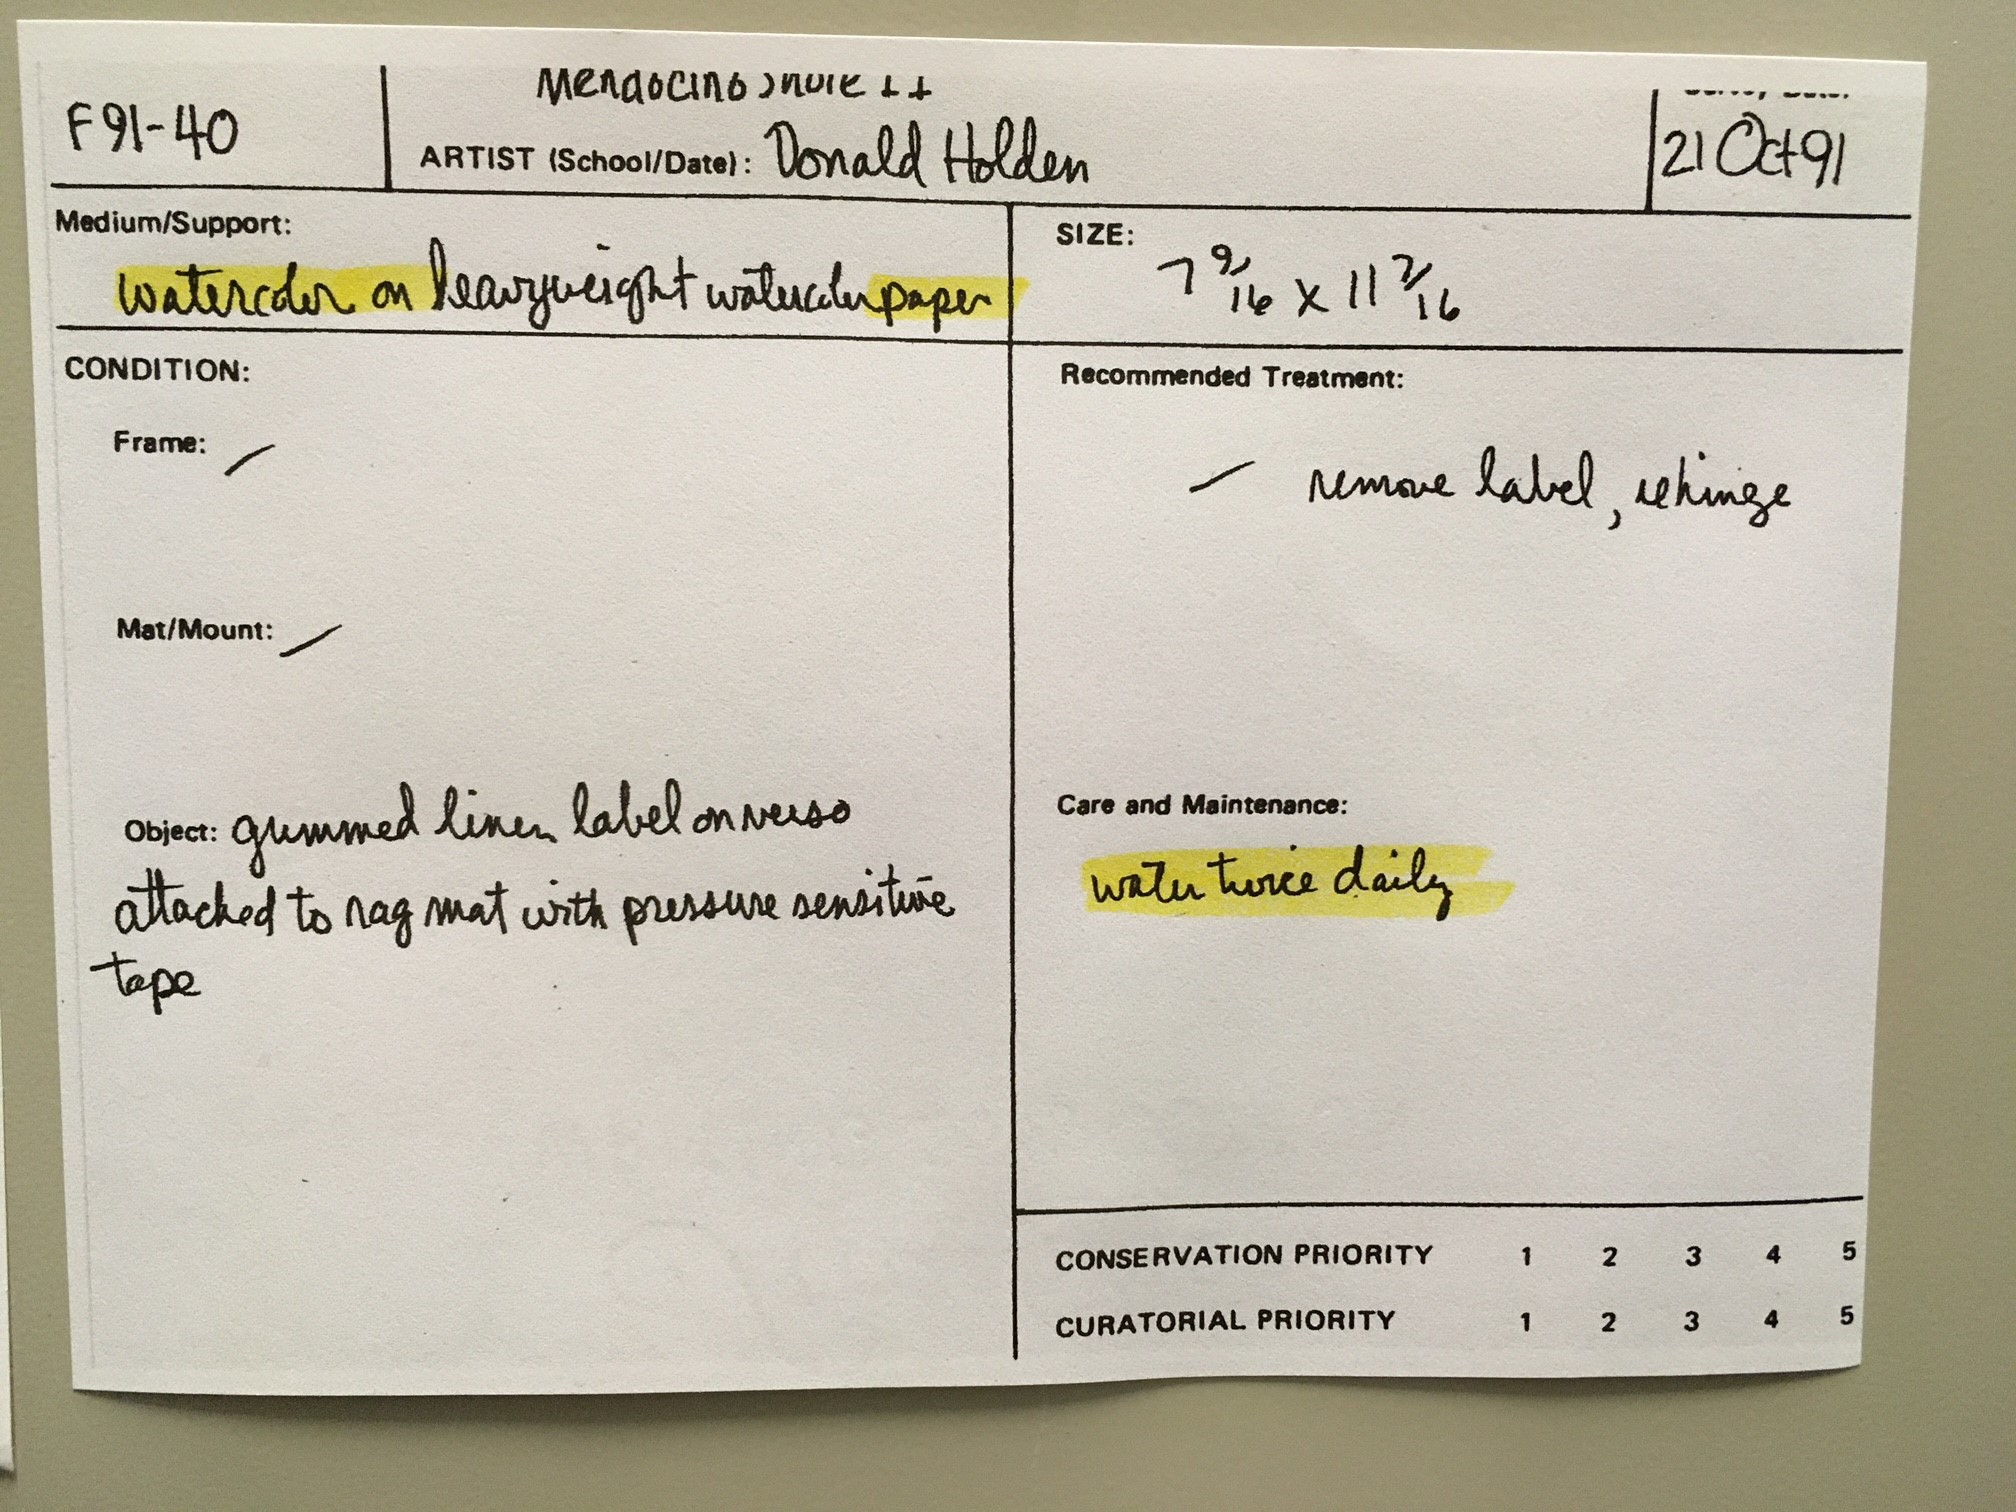 F91-40
Mendocino Shore II
ARTIST (School/Date): Donald Holden
21 Oct 91
Medium/Support:
watercolor on heavyweight watercolor paper
SIZE:
7 9/16 x 11 7/16
CONDITION:
Frame: /
Mat/Mount: /
Object: gummed linen label on verso
attached to rag mat with pressure sensitive
tape
Recommended Treatment:
– remove label, rehinge
Care and Maintenance:
water twice daily
CONSERVATION PRIORITY 1 2 3 4 5
CURATORIAL PRIORITY 1 2 3 4 5